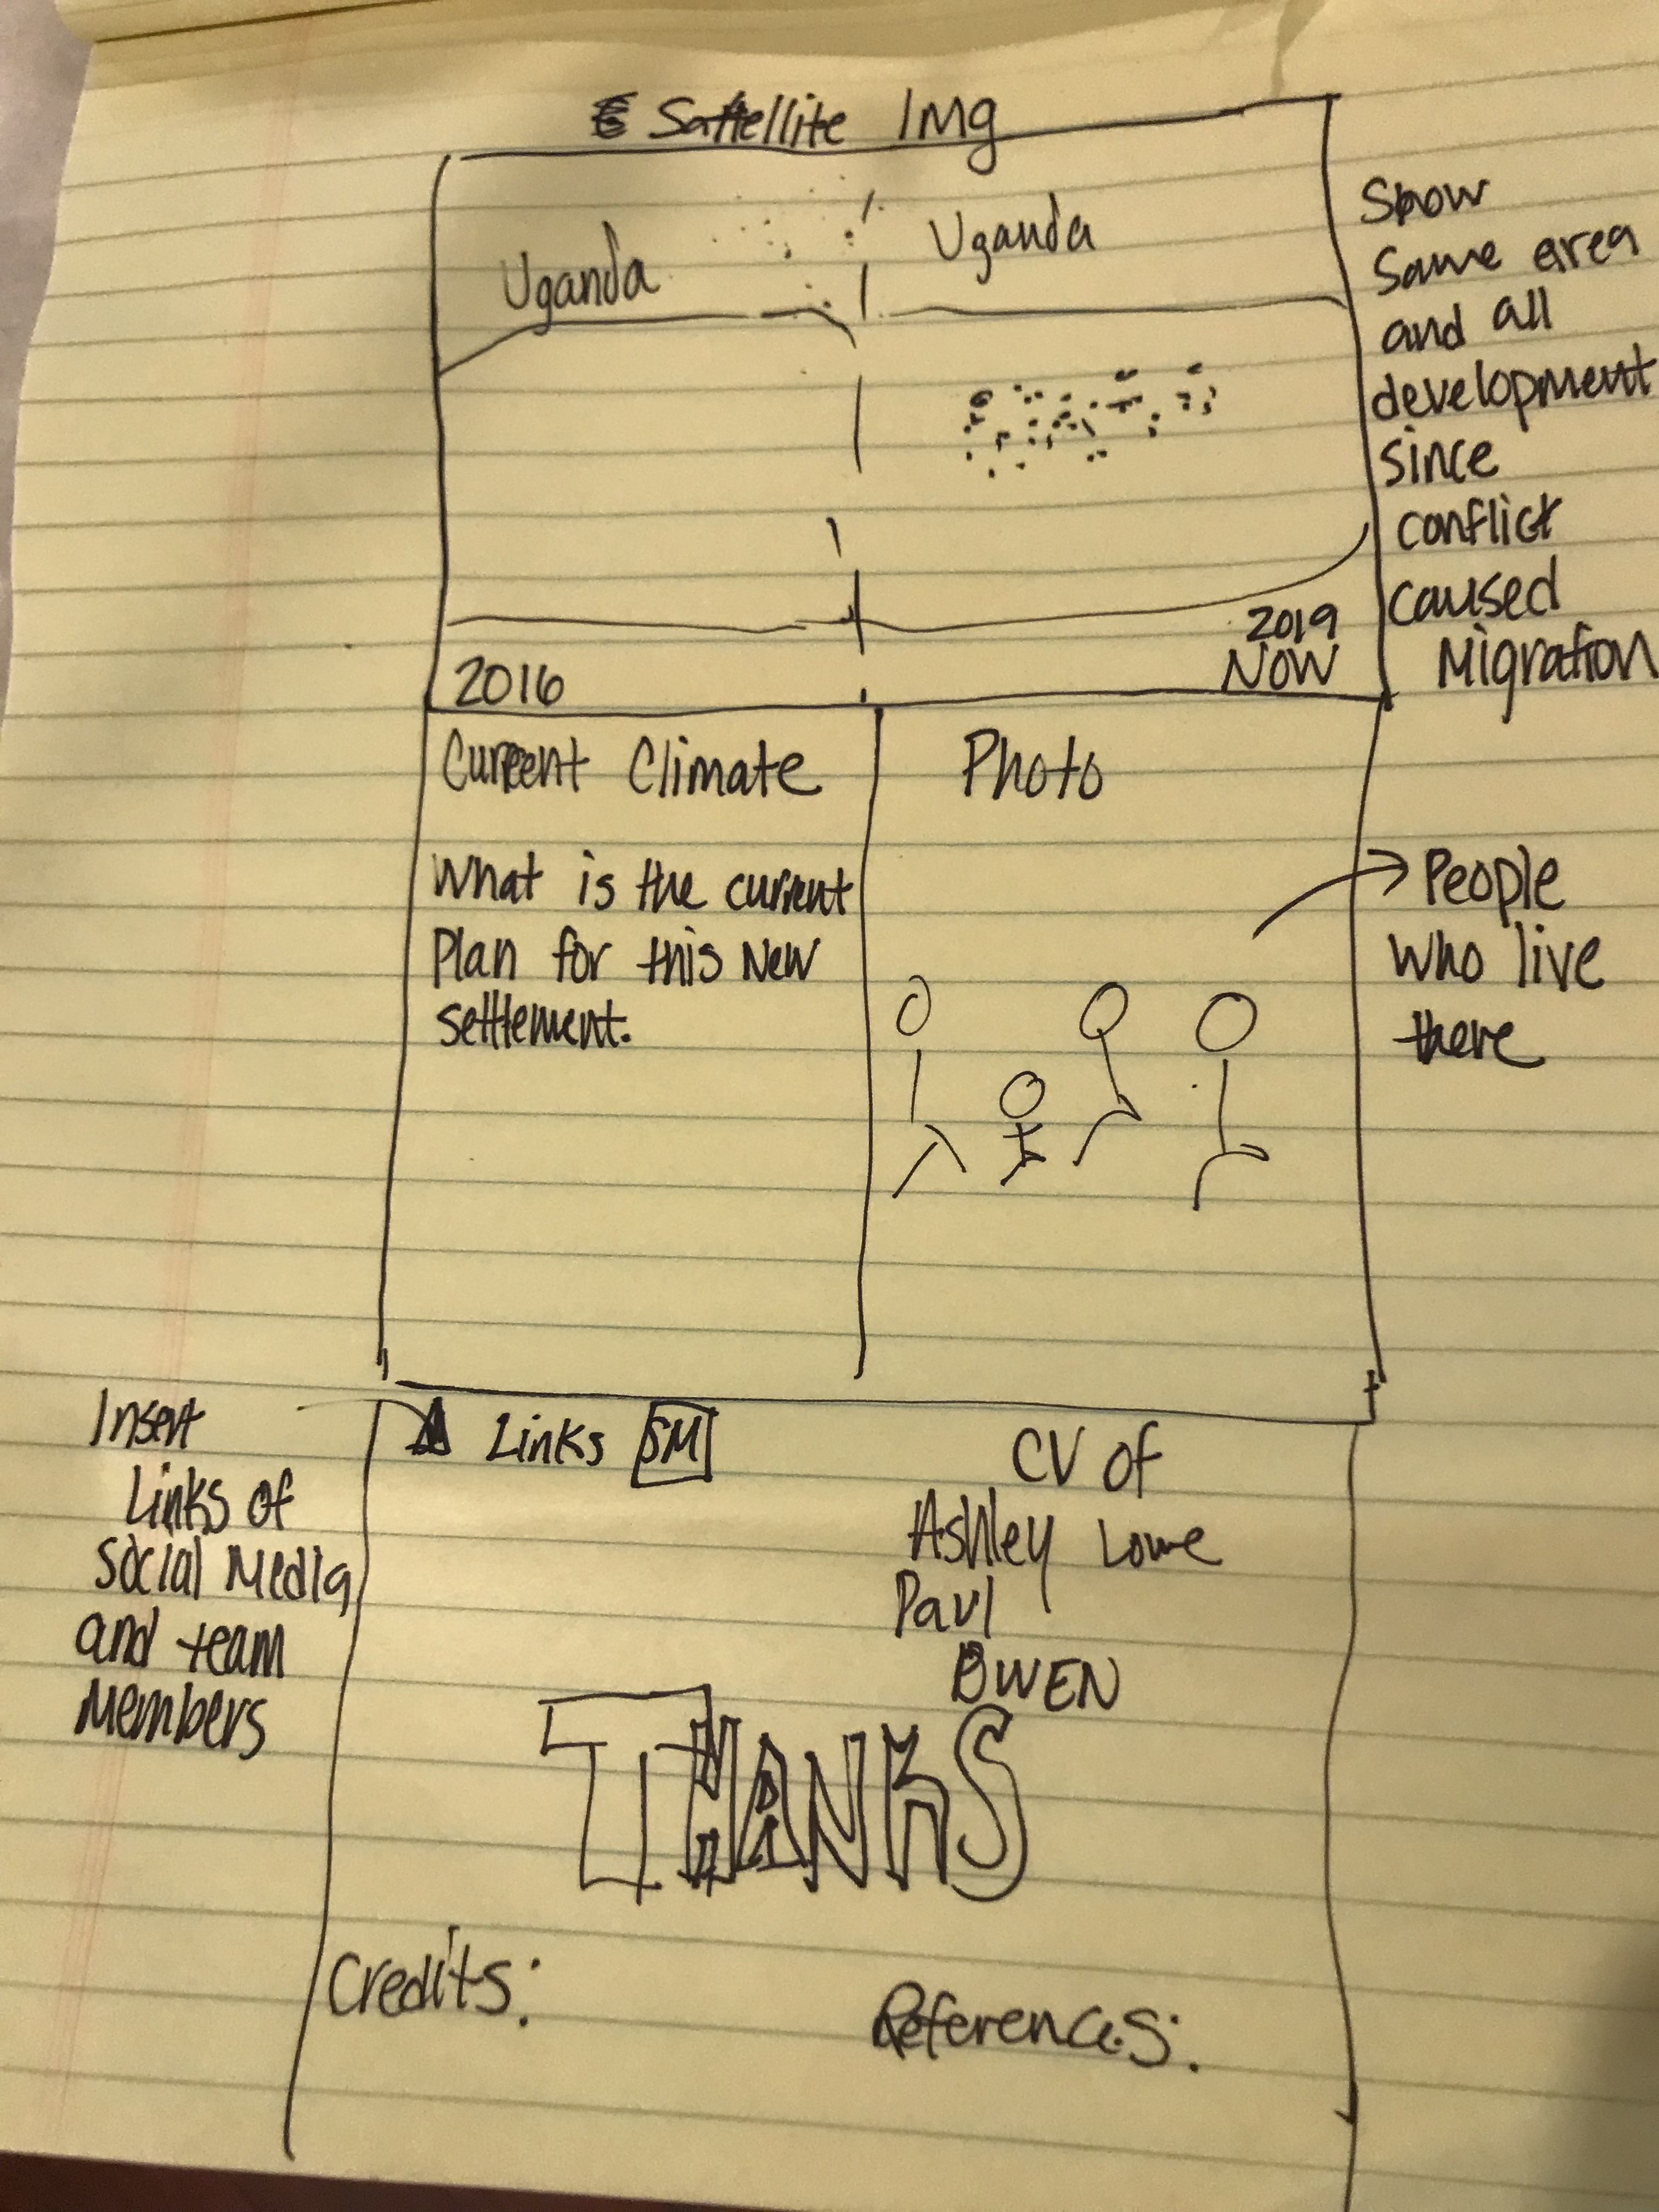 Sattellite Img
Uganda
Uganda
Show
Same area
and all
development
since
conflict
caused
Migration
2016
2019
NOW
Current Climate
What is the current
Plan for this New
settlement.
Photo
People
who live
there
Insert
Links of
Social Media
and team
Members
Links SM
CV of
Ashley Lowe
Paul
OWEN
THANKS
Credits:
References: